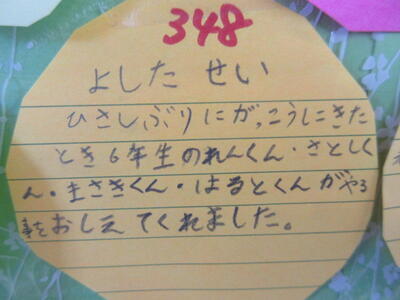 348
よした せい
ひさしぶりにが、こうにきた
とき6年生のれんくん・さとしく
ん・まさきくん・はるとくんがやる
事をおしえてくれました。